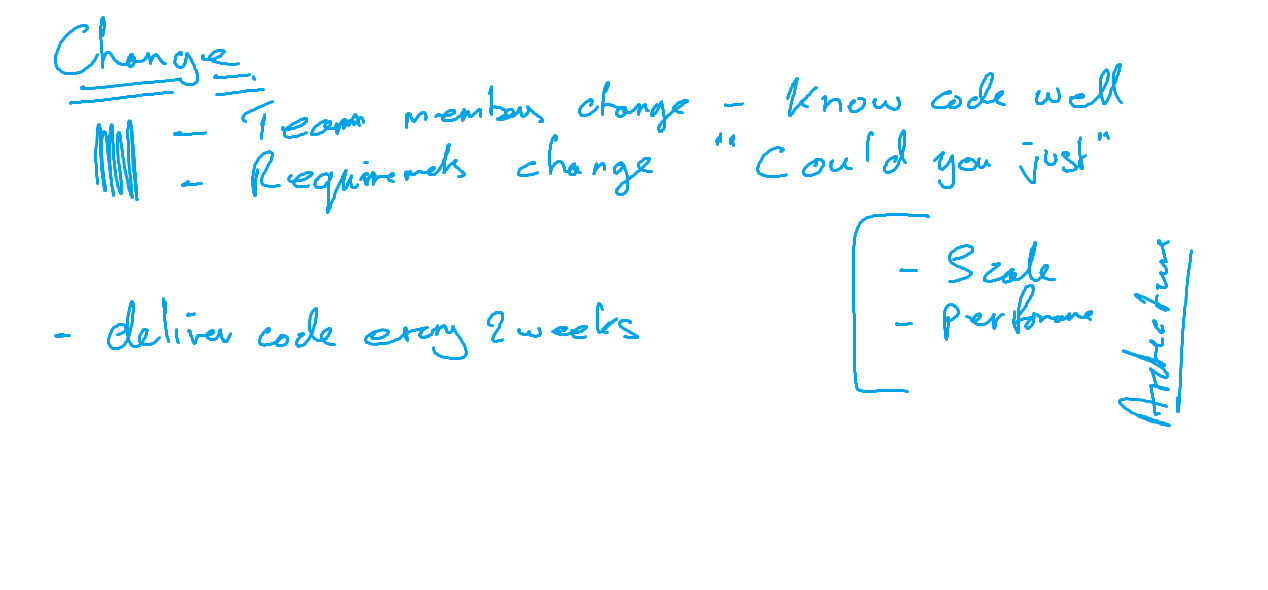 Change
- Team members change - Know code well
- Requirements change "Could you just"
- Scale
- Performance
Architecture
- deliver code every 2 weeks